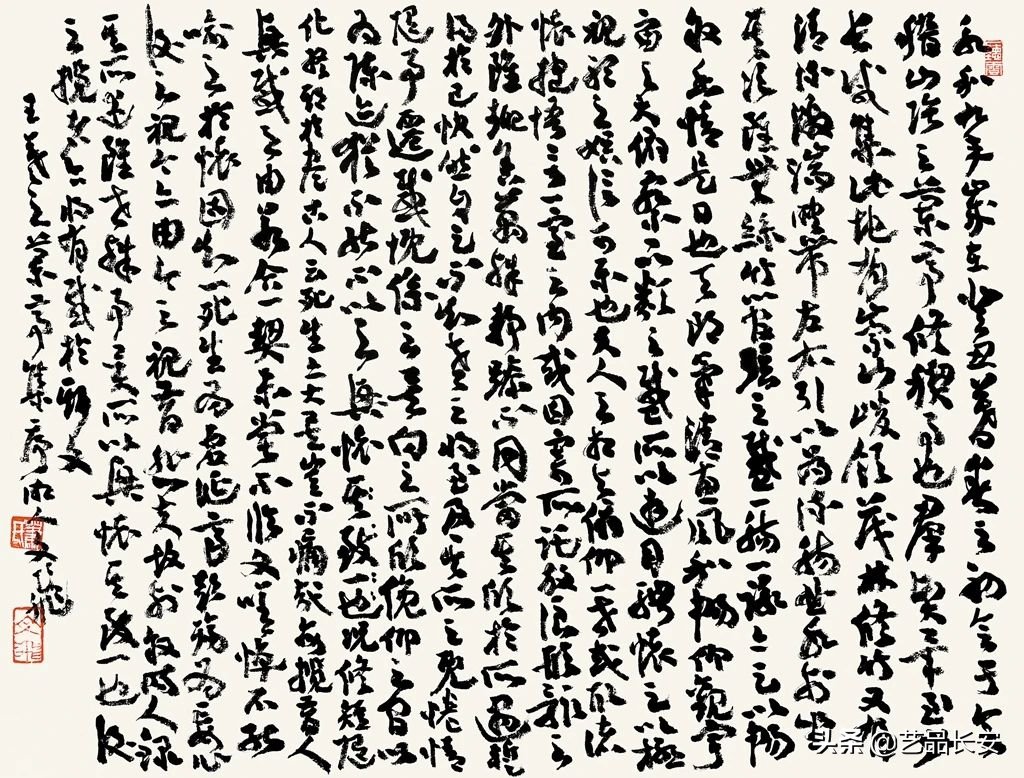 永和九年歲在癸丑暮春之初會于會
稽山陰之蘭亭修禊事也群賢畢至少
長咸集此地有崇山峻領茂林修竹又有
清流激湍映帶左右引以為流觴曲水列坐
其次雖無絲竹管弦之盛一觴一詠亦足以暢
敘幽情是日也天朗氣清惠風和暢仰觀宇
宙之大俯察品類之盛所以遊目騁懷足以極
視聽之娛信可樂也夫人之相與俯仰一世或取諸
懷抱悟言一室之內或因寄所託放浪形骸之
外雖趣舍萬殊靜躁不同當其欣於所遇蹔
得於己快然自足不知老之將至及其所之既惓情
隨事遷感慨係之矣向之所欣俛仰之間以
為陳迹猶不能不以之興懷其致一也況修短隨
化終期於盡古人云死生亦大矣豈不痛哉每攬昔人
興感之由若合一契未嘗不臨文嗟悼不能
喻之於懷固知一死生為虛誕齊彭殤為妄作
後之視今亦由今之視昔悲夫故列敘時人錄
其所述雖世殊事異所以興懷其致一也後
之攬者亦將有感於斯文
王羲之蘭亭集序 文飛
头条@艺品长安